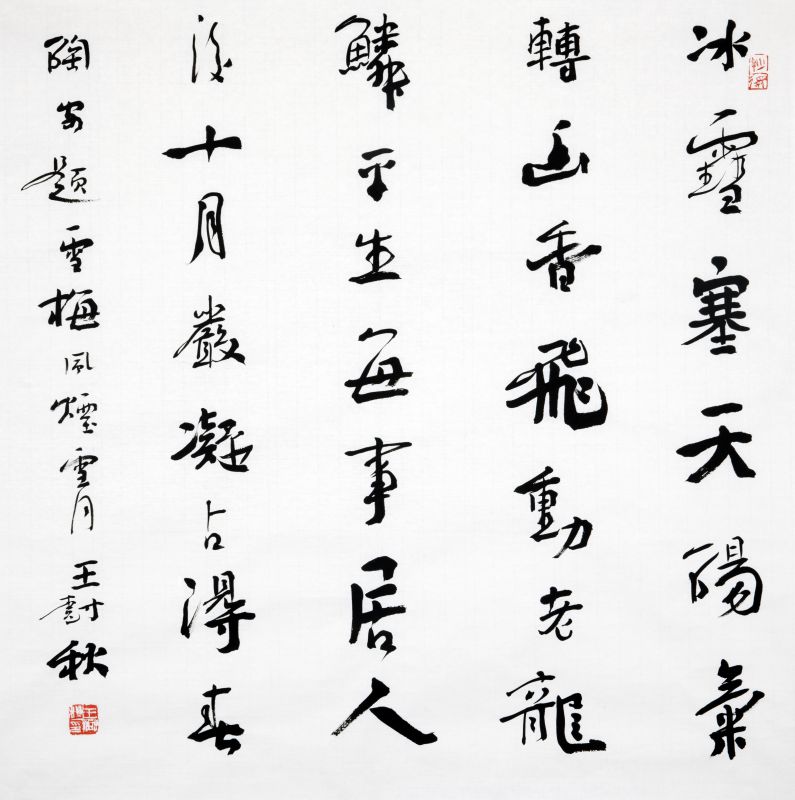 冰雪塞天陽氣
轉幽香飛動老龍
鱗平生每事居人
後十月嚴凝占得春
陶安題雪梅風煙雪月王秋